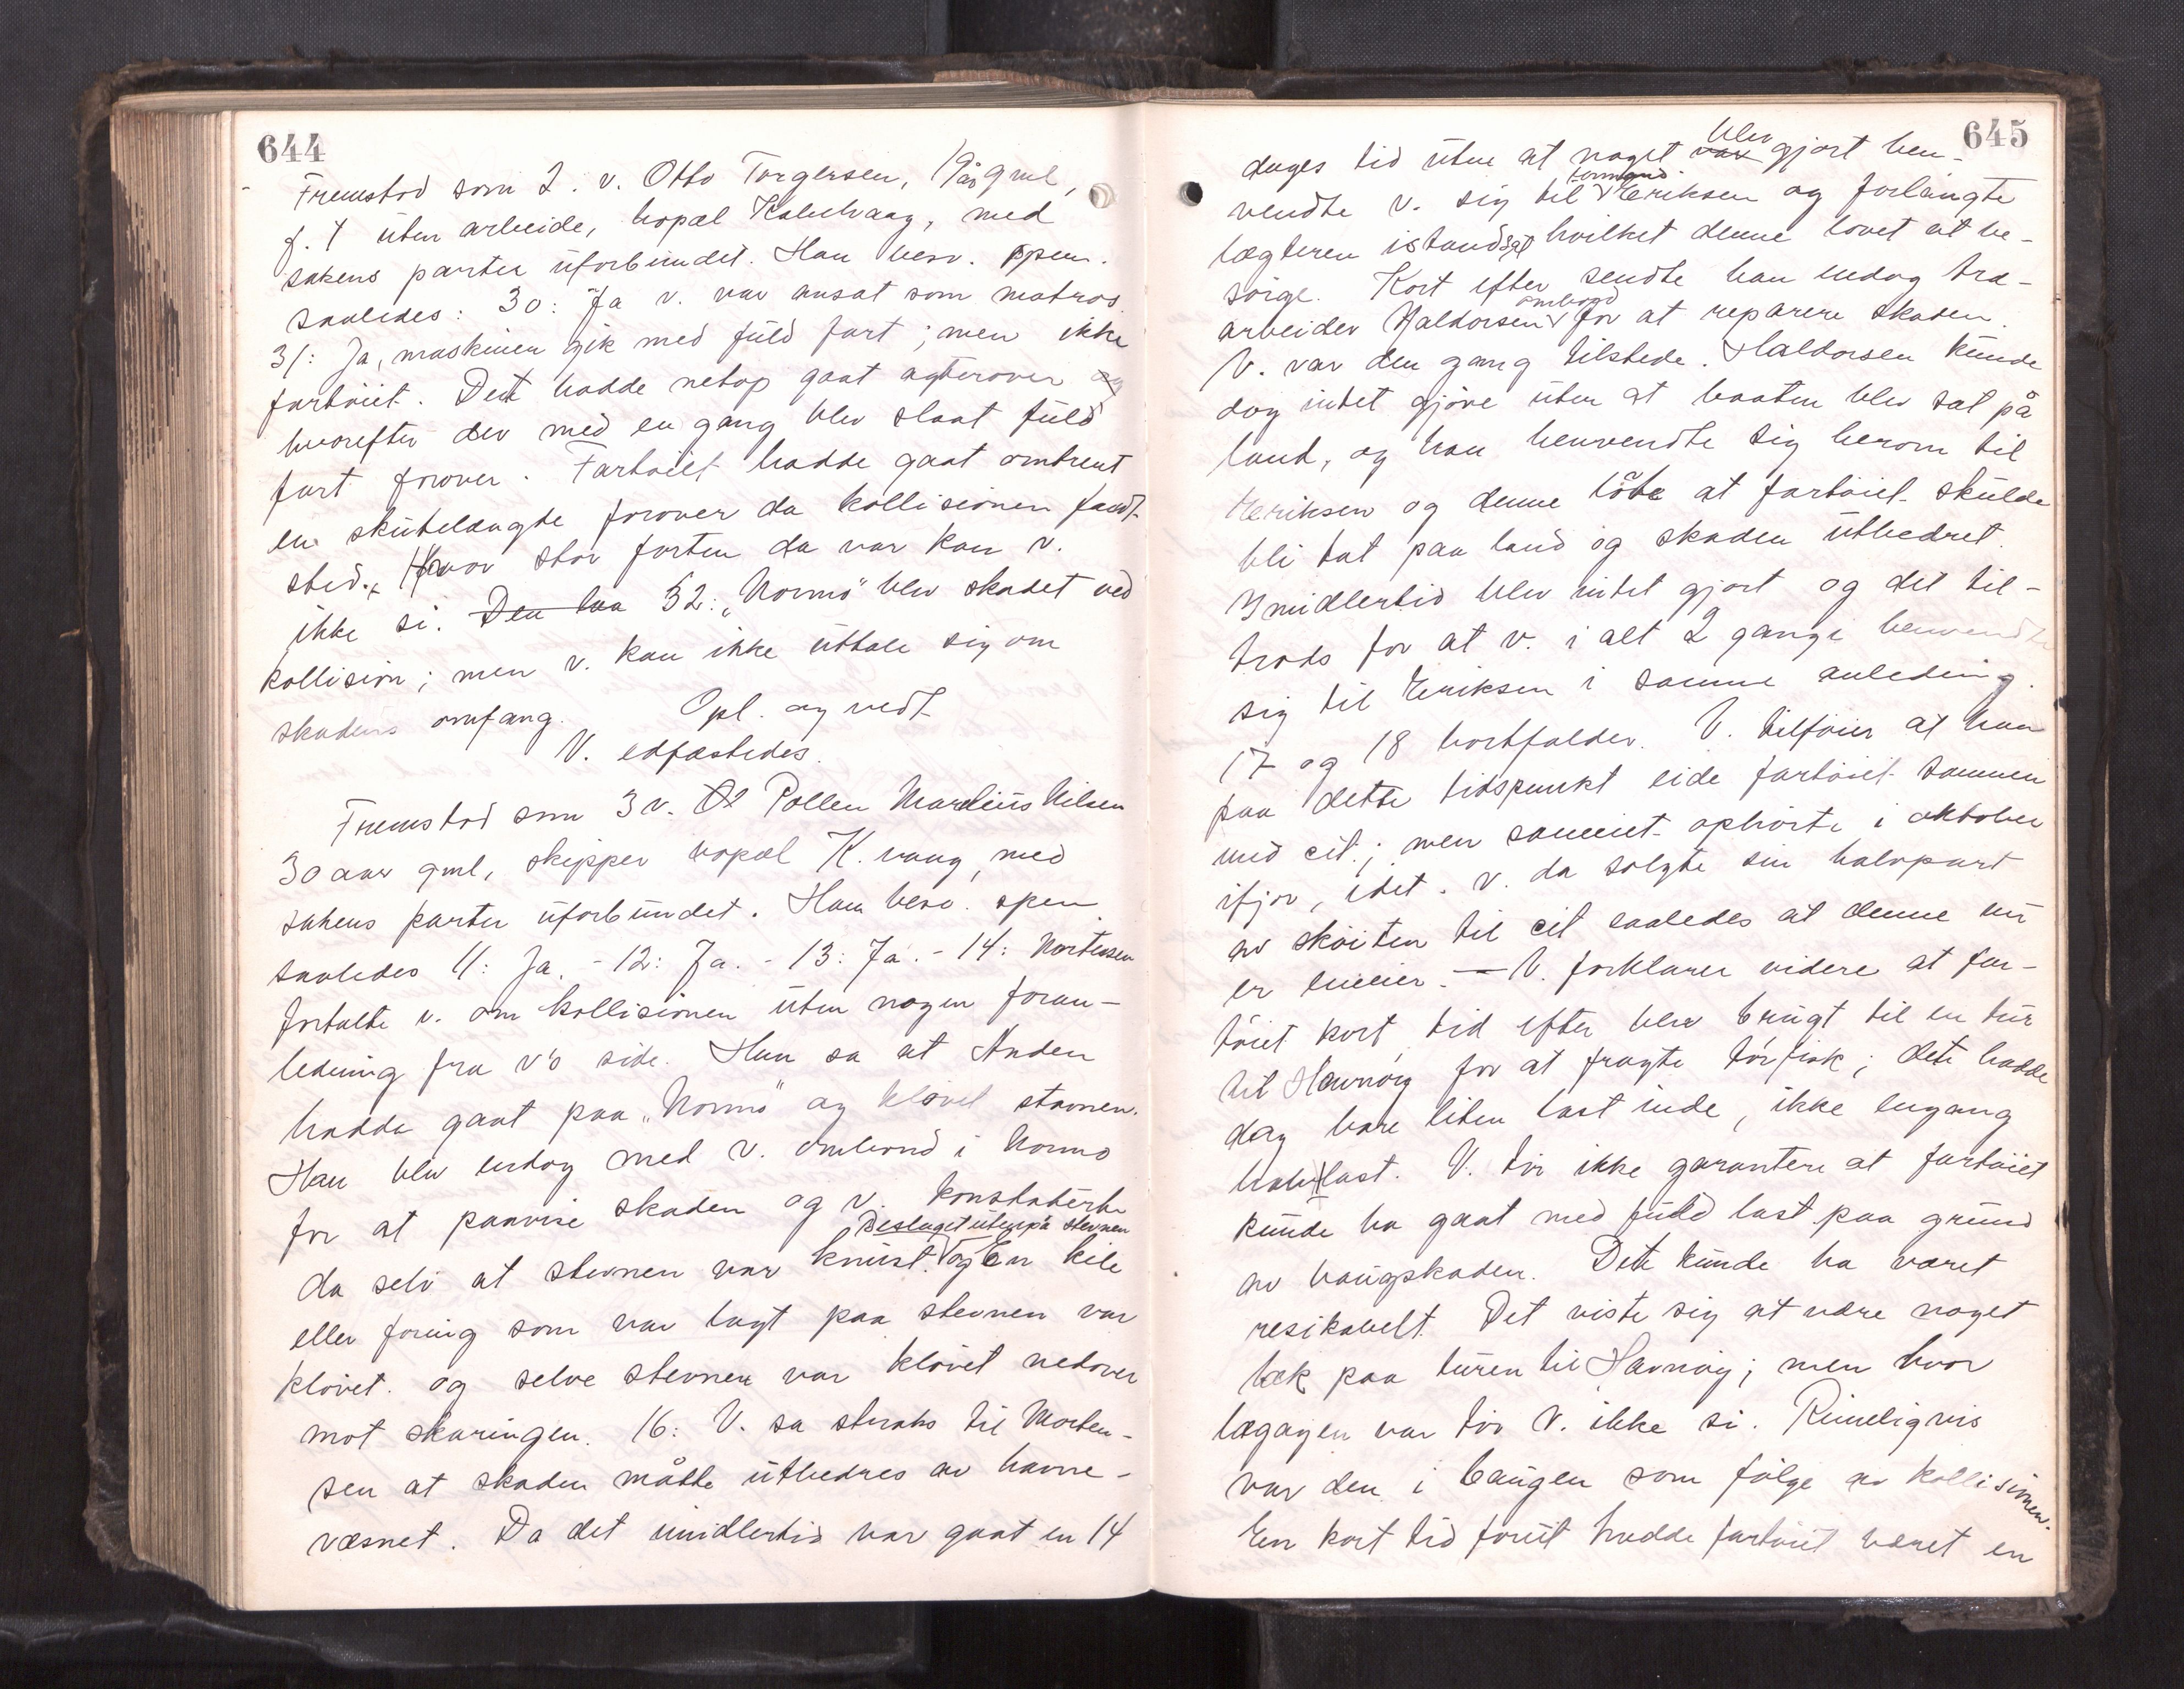 644
Fremstod som 2. v. Otto Torgersen, 19 år gml,
f. t uten arbeide, bopæl Kabelvaag, med
sakens parter uforbundet. Han besv. spm.
saaledes: 30: Ja v. var ansat som matros.
31: Ja, maskinen gik med fuld fart; men ikke
fartøiet. Det hadde netop gaat agterover og
hvorefter der med en gang blev slaat fuld
fart forover. Fartøiet hadde gaat omtrent
en skutelængde forover da kollisionen fandt
sted. Hvor stor farten da var kan v.
ikke si. Den laa 32: "Normo" blev skadet ved
kollision; men v. kan ikke uttale sig om
skadens omfang. Opl. og vedt.
V. edfæstedes.
Fremstod som 3 v. Pollen Marelius Nilsen
30 aar gml, skipper bopæl K. vaag, med
sakens parter uforbundet. Han besv. spm
saaledes 11: Ja. - 12: Ja. - 13: Ja. - 14: Mortensen
fortalte v. om kollisionen uten nogen foran-
ledning fra v's side. Han sa at Anden
hadde gaat paa "Normo" og kløvet stavnen.
Han blev endog med v. ombord i Normo
for at paavise skaden og v. konstaterte
Beslaget utenpå stevnen
da selv at stevnen var knust. og En kile
eller foring som var lagt paa stevnen var
kløvet. og selve stevnen var kløvet nedover
mot skaringen. 16: V. sa straks til Morten-
sen at skaden måtte utbedres av havne-
væsnet. Da det imidlertid var gaat en 14
645
blev
dages tid uten at noget var gjort hen-
formand
vendte v. sig til Eriksen og forlangte
lægteren istandsat hvilket denne lovet at be-
sørge. Kort efter sendte han endog træ-
ombord
arbeider Haldorsen for at reparere skaden.
V. var den gang tilstede. Haldorsen kunde
dog intet gjøre uten at baaten blev sat på
land, og han henvendte sig herom til
Eriksen og denne lovte at fartøiet skulde
bli tat paa land og skaden utbedret.
Imidlertid blev intet gjort og det til-
trods for at v. i alt 2 gange henvendte
sig til Eriksen i samme anledning.
17 og 18 bortfalder. V. tilføier at han
paa dette tidspunkt eide fartøiet sammen
med cit.; men sameiet ophørte i oktober
ifjor, idet v. da solgte sin halvpart
av skøiten til cit saaledes at denne nu
er eneeier. — V. forklarer videre at far-
tøiet kort tid efter blev brugt til en tur
til Havnøy for at fragte tørfisk; det hadde
dog bare liten last inde, ikke engang
halv last. V. tør ikke garantere at fartøiet
kunde ha gaat med fuld last paa grund
av baugskaden. Det kunde ha været
resikabelt. Det viste sig at være noget
læk paa turen til Havnøy; men hvor
lægagen var tør V. ikke si. Rimeligvis
var den i baugen som følge av kollisionen.
En kort tid forut hadde fartøiet været en